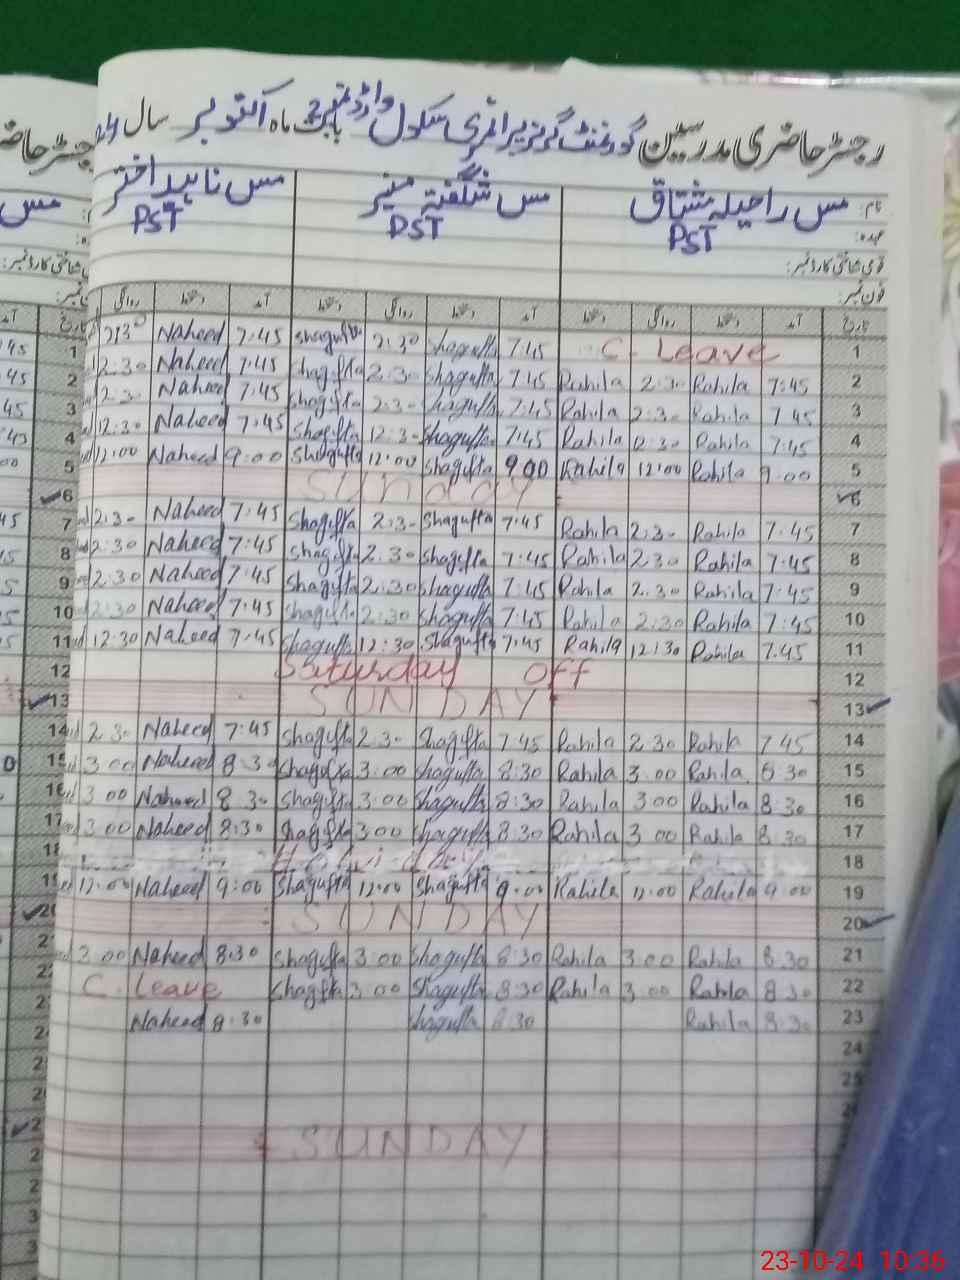 رجسٹر حاضری مدرسین گورنمنٹ گرلز پرائمری سکول وارڈ نمبر 2 بابت ماہ اکتوبر سال 24
نام: مس راحیلہ مشتاق مس شگفتہ منیر مس ناہید اختر
عہدہ: PST PST PST
قومی شناختی کارڈ نمبر:
فون نمبر:
تاریخ آمد دستخط روانگی دستخط آمد دستخط روانگی دستخط آمد دستخط روانگی
1 2:30 Naheed 7:45 Shagufta 2:30 Shagufta 7:45 C. Leave 1
2 2:30 Naheed 7:45 Shagufta 2:30 Shagufta 7:45 Rahila 2:30 Rahila 7:45 2
3 2:3- Naheed 7:45 Shagufta 2:3- Shagufta 7:45 Rahila 2:3- Rahila 7:45 3
4 12:30 Naheed 7:45 Shagufta 12:3- Shagufta 7:45 Rahila 12:3- Rahila 7:45 4
5 12:00 Naheed 9:00 Shagufta 12:00 Shagufta 9:00 Rahila 12:00 Rahila 9:00 5
6 Sunday 6
7 2:3- Naheed 7:45 Shagufta 2:3- Shagufta 7:45 Rahila 2:3- Rahila 7:45 7
8 2:30 Naheed 7:45 Shagufta 2:30 Shagufta 7:45 Rahila 2:30 Rahila 7:45 8
9 2:30 Naheed 7:45 Shagufta 2:30 Shagufta 7:45 Rahila 2:30 Rahila 7:45 9
10 2:30 Naheed 7:45 Shagufta 2:30 Shagufta 7:45 Rahila 2:30 Rahila 7:45 10
11 12:30 Naheed 7:45 Shagufta 12:30 Shagufta 7:45 Rahila 12:30 Rahila 7:45 11
12 Saturday off 12
13 SUNDAY 13
14 2:30 Naheed 7:45 Shagufta 2:3- Shagufta 7:45 Rahila 2:30 Rahila 7:45 14
15 3:00 Naheed 8:30 Shagufta 3:00 Shagufta 8:30 Rahila 3:00 Rahila 8:30 15
16 3:00 Naheed 8:30 Shagufta 3:00 Shagufta 8:30 Rahila 3:00 Rahila 8:30 16
17 3:00 Naheed 8:30 Shagufta 3:00 Shagufta 8:30 Rahila 3:00 Rahila 8:30 17
18 Holiday 18
19 12:00 Naheed 9:00 Shagufta 12:00 Shagufta 9:00 Rahila 12:00 Rahila 9:00 19
20 SUNDAY 20
3:00 Naheed 8:30 Shagufta 3:00 Shagufta 8:30 Rahila 3:00 Rahila 8:30 21
C. Leave Shagufta 3:00 Shagufta 8:30 Rahila 3:00 Rahila 8:30 22
Naheed 8:30 Shagufta 8:30 Rahila 8:30 23
24
25
SUNDAY
23-10-24 10:36